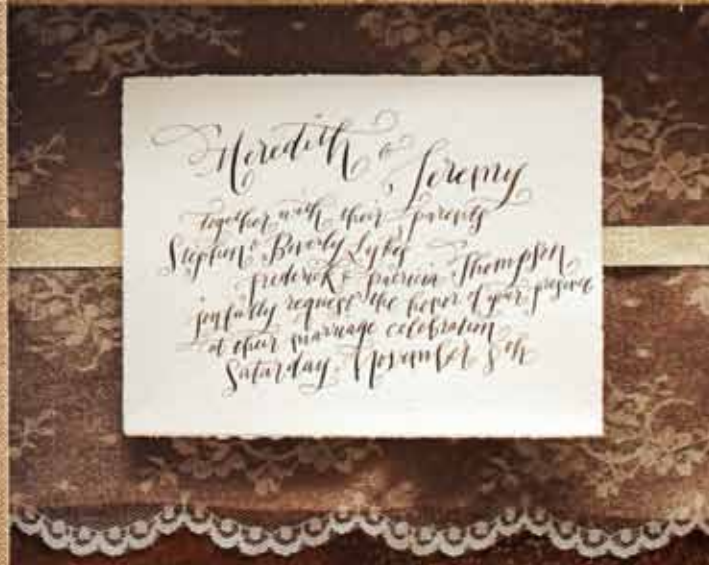 Meredith & Jeremy
together with their parents
Stephen & Beverly Lykes
Frederick & Patricia Thompson
joyfully request the honor of your presence
at their marriage celebration
Saturday, November 8th